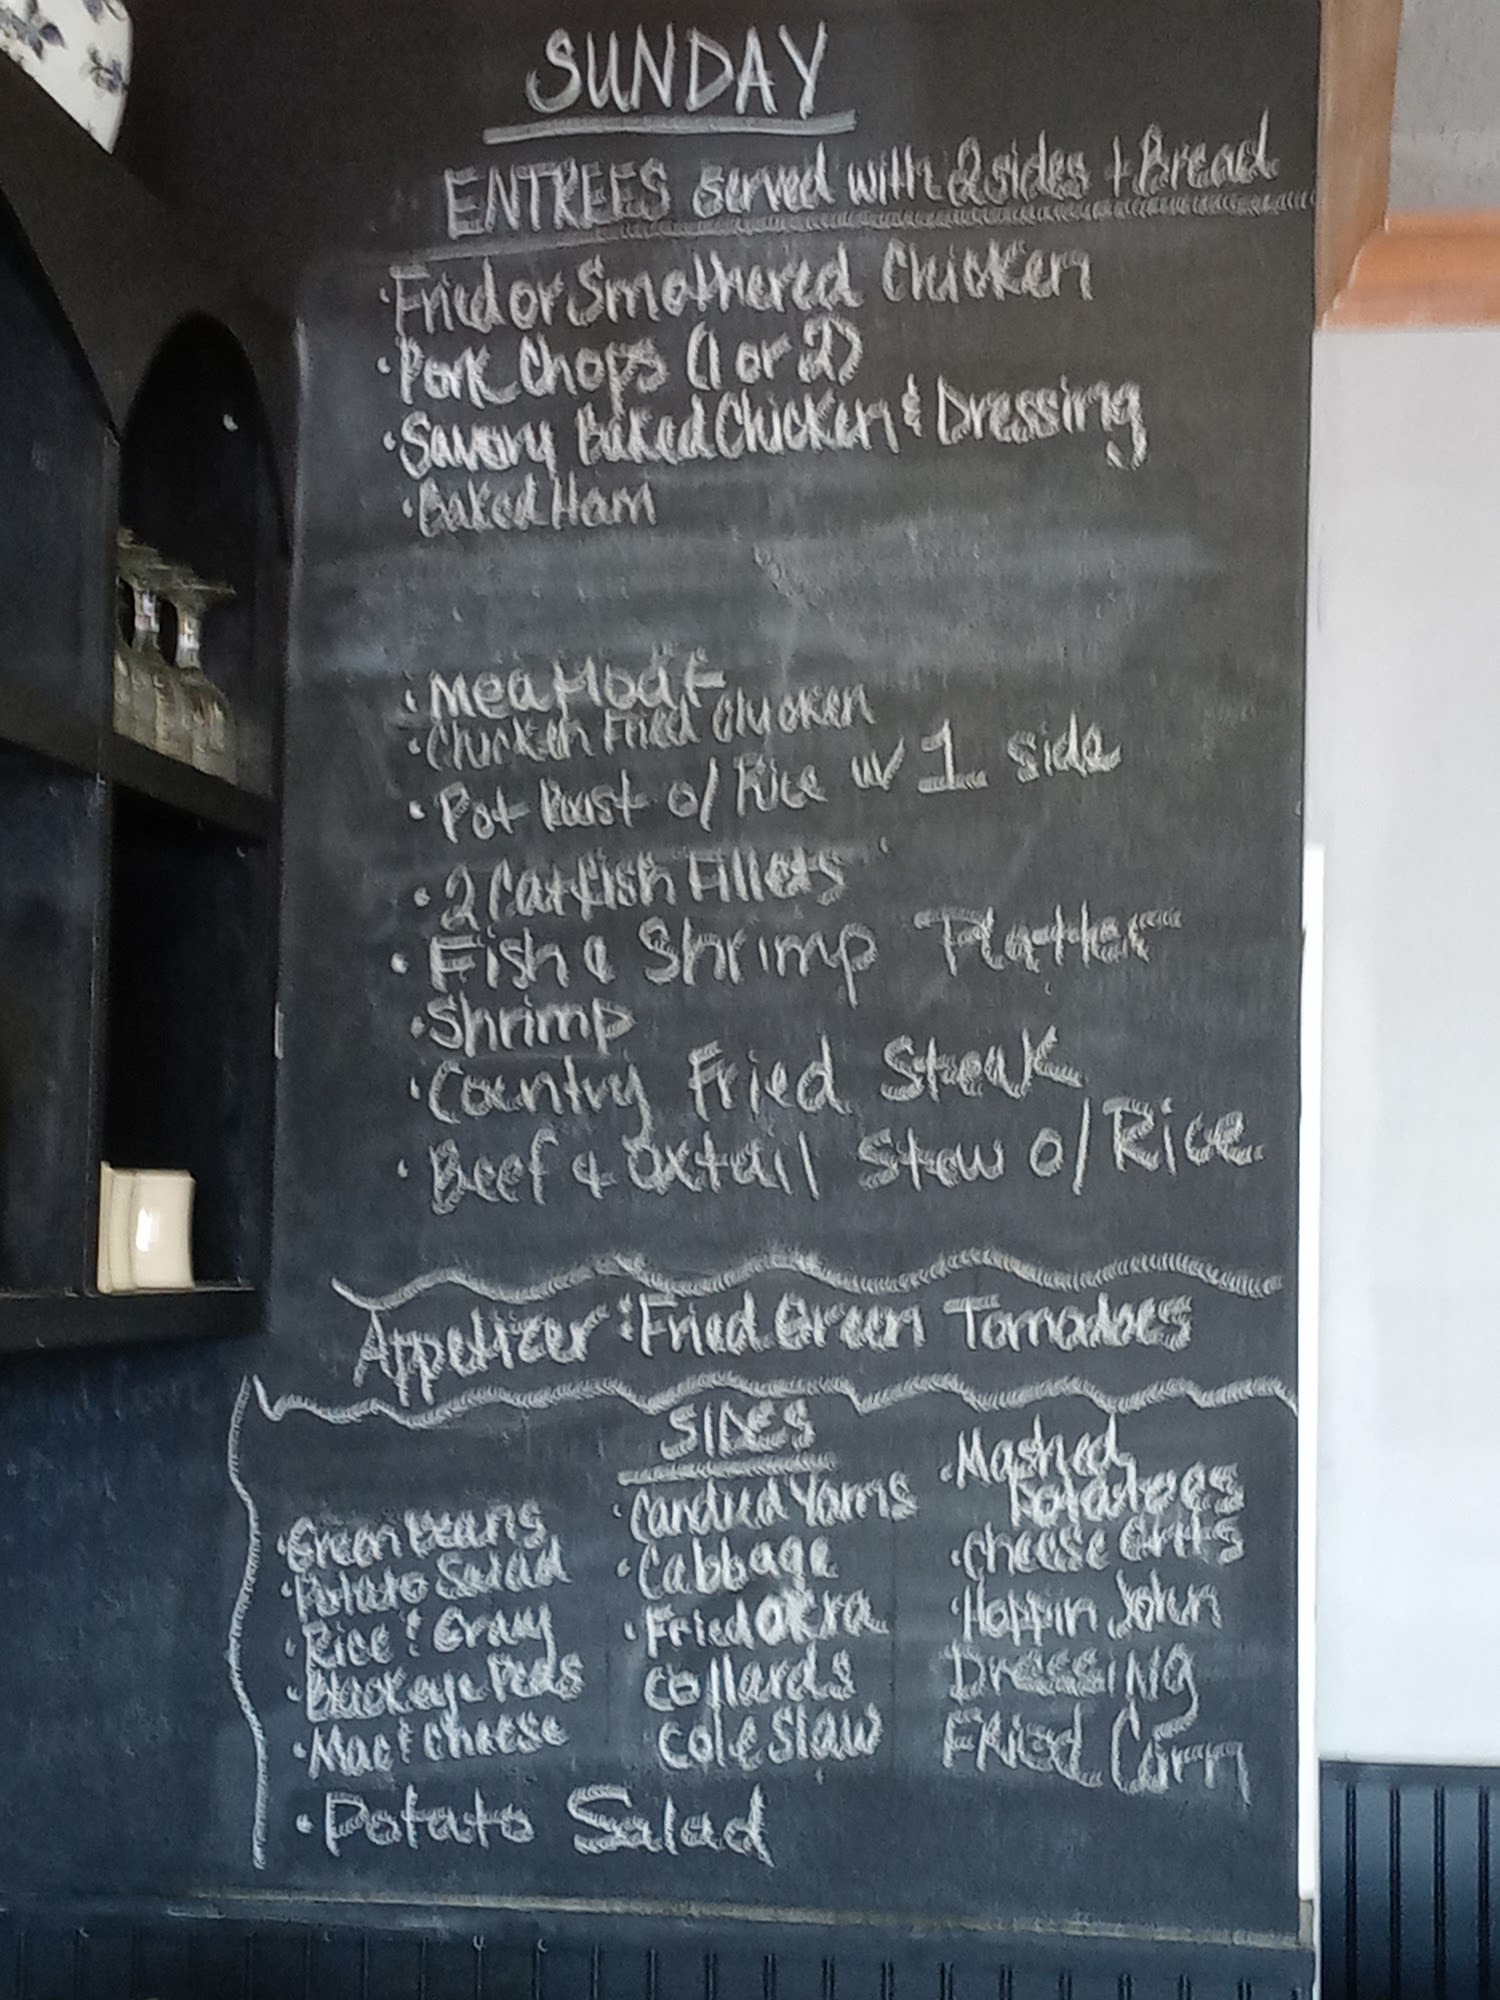 SUNDAY
ENTREES served with 2 sides + Bread
• Fried or Smothered Chicken
• Pork Chops (1 or 2)
• Savory Baked Chicken & Dressing
• Baked Ham
• Meatloaf
• Chicken Fried Chicken
• Pot Roast o/ Rice w/ 1 side
• 2 Catfish Fillets
• Fish & Shrimp Platter
• Shrimp
• Country Fried Steak
• Beef & Oxtail Stew o/ Rice
Appetizer: Fried Green Tomatoes
SIDES
• Green Beans
• Potato Salad
• Rice & Gravy
• Blackeye Peas
• Mac & Cheese
• Potato Salad
• Candied Yams
• Cabbage
• Fried Okra
Collards
Cole Slaw
• Mashed
Potatoes
• Cheese Grits
• Hoppin John
Dressing
Fried Corn